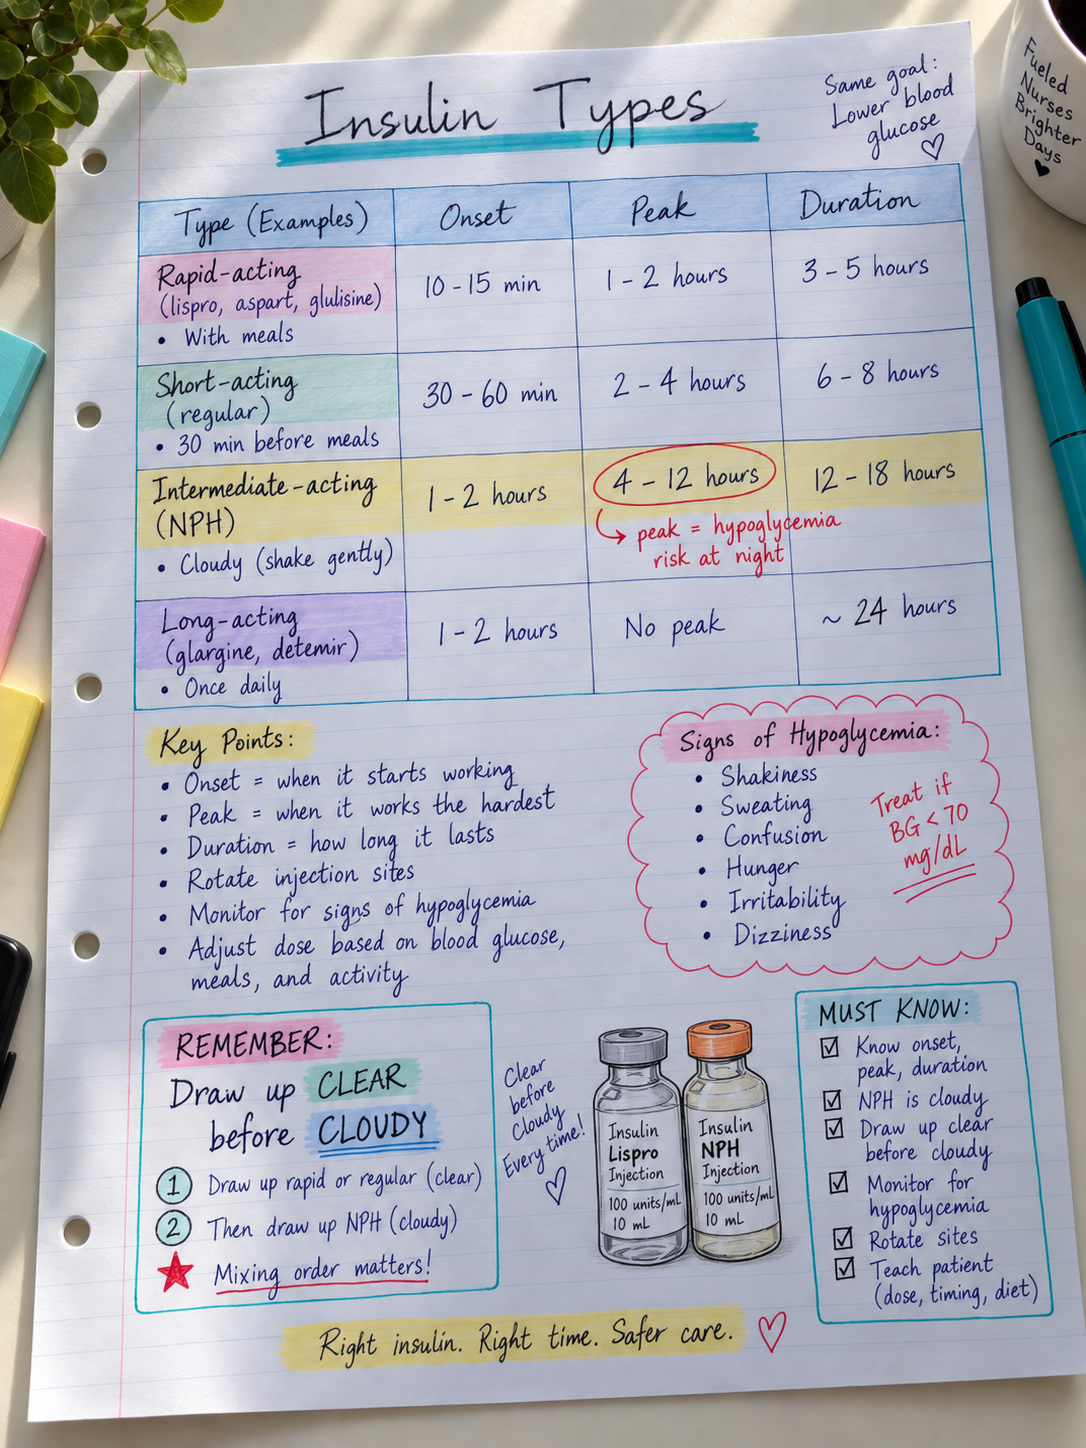 Insulin Types
Same goal:
Lower blood
glucose
Fueled
Nurses
Brighter
Days
Type (Examples)
Onset
Peak
Duration
Rapid-acting
(lispro, aspart, glulisine)
• With meals
10 - 15 min
1 - 2 hours
3 - 5 hours
Short-acting
(regular)
• 30 min before meals
30 - 60 min
2 - 4 hours
6 - 8 hours
Intermediate-acting
(NPH)
• Cloudy (shake gently)
1 - 2 hours
4 - 12 hours
peak = hypoglycemia
risk at night
12 - 18 hours
Long-acting
(glargine, detemir)
• Once daily
1 - 2 hours
No peak
~ 24 hours
Key Points:
• Onset = when it starts working
• Peak = when it works the hardest
• Duration = how long it lasts
• Rotate injection sites
• Monitor for signs of hypoglycemia
• Adjust dose based on blood glucose,
meals, and activity
Signs of Hypoglycemia:
• Shakiness
• Sweating
• Confusion
• Hunger
• Irritability
• Dizziness
Treat if
BG < 70
mg/dL
REMEMBER:
Draw up CLEAR
before CLOUDY
1 Draw up rapid or regular (clear)
2 Then draw up NPH (cloudy)
★ Mixing order matters!
Clear
before
Cloudy
Every time!
Insulin
Lispro
Injection
100 units/mL
10 mL
Insulin
NPH
Injection
100 units/mL
10 mL
MUST KNOW:
☑ Know onset,
peak, duration
☑ NPH is cloudy
☑ Draw up clear
before cloudy
☑ Monitor for
hypoglycemia
☑ Rotate sites
☑ Teach patient
(dose, timing, diet)
Right insulin. Right time. Safer care.